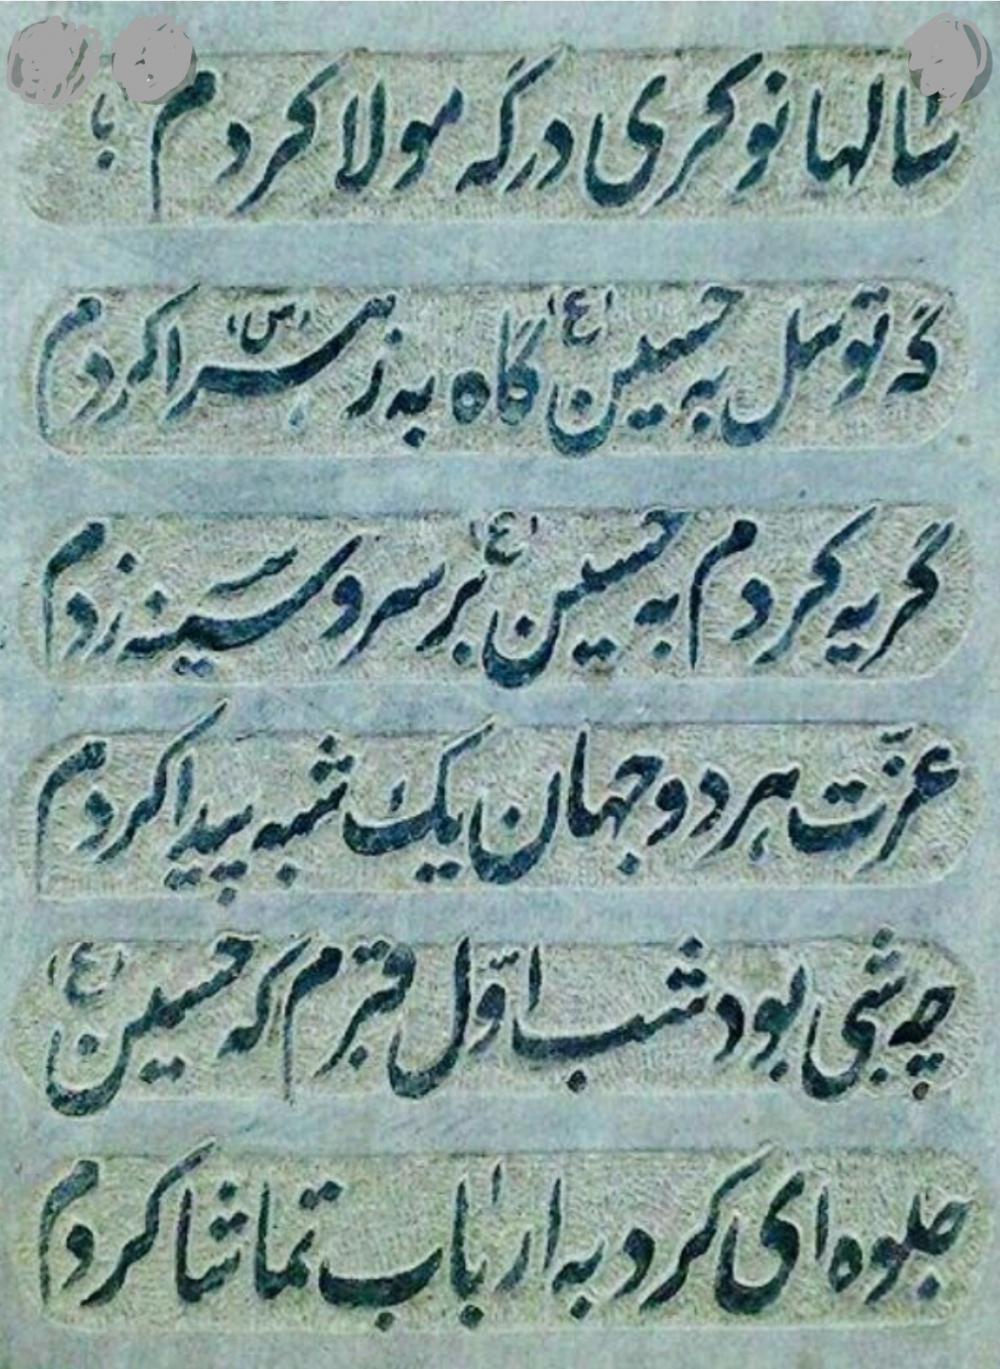 سالها نوکری درگه مولا کردم
گه توسل به حسین (ع) گاه به زهرا (س) کردم
گریه کردم به حسین (ع) بر سر و سینه زدم
عزّت هر دو جهان یک شبه پیدا کردم
چه شبی بود شب اوّل قبرم که حسین (ع)
جلوه ای کرد به ارباب تماشا کردم